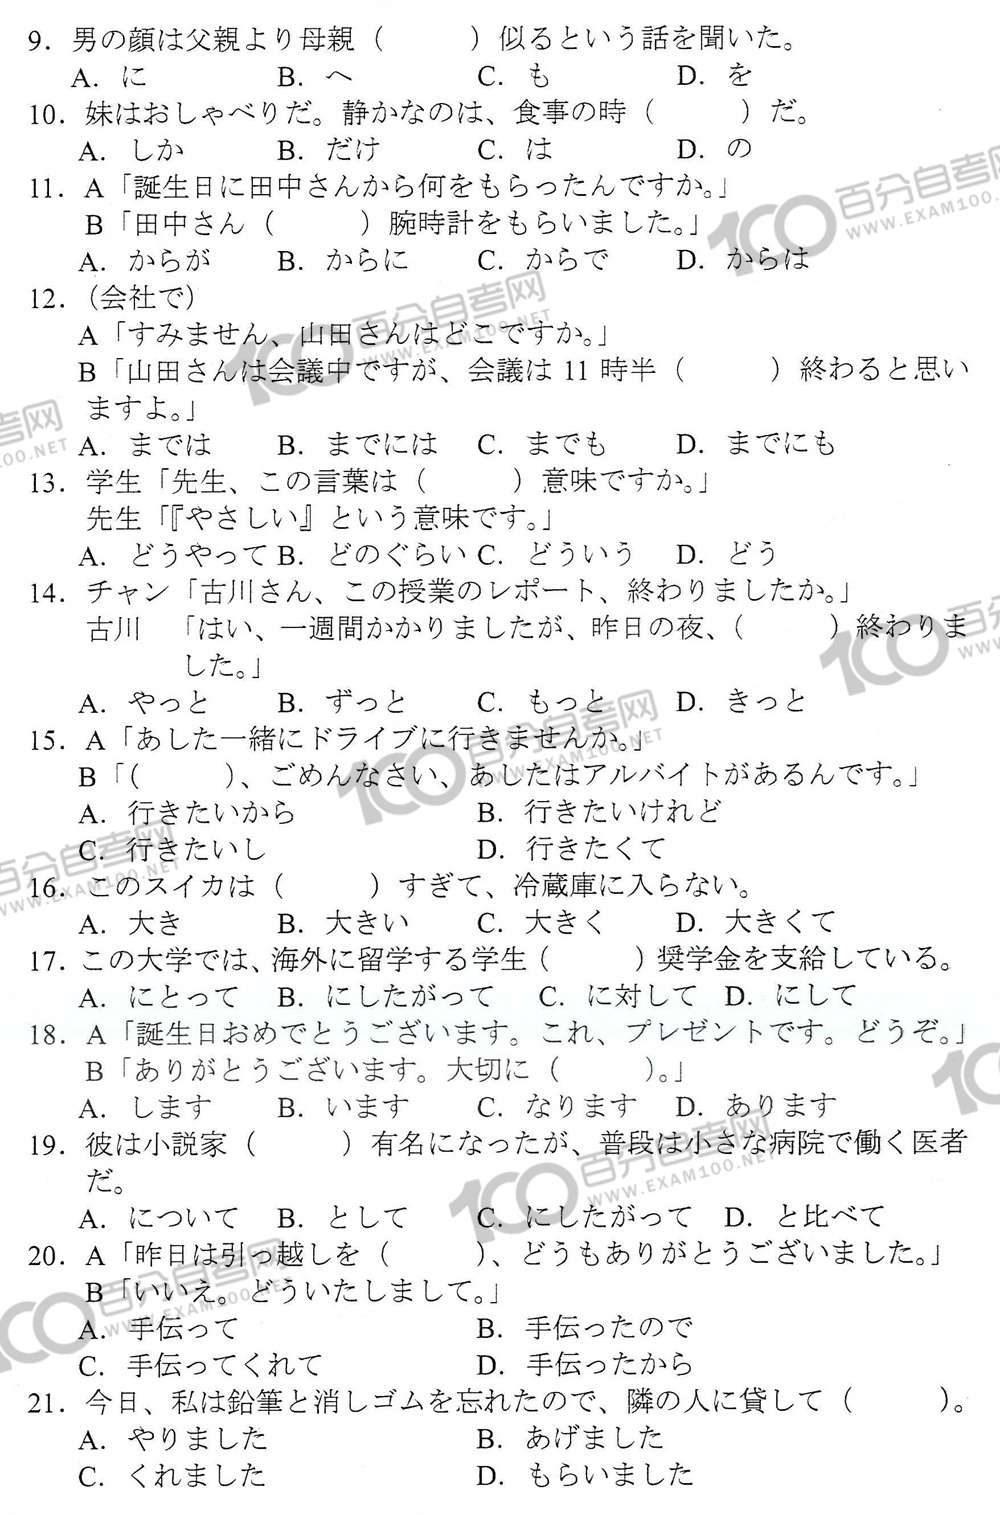 9. 男の顔は父親より母親（　　　）似るという話を聞いた。
A. に　B. へ　C. も　D. を
10. 妹はおしゃべりだ。静かなのは、食事の時（　　　）だ。
A. しか　B. だけ　C. は　D. の
11. A「誕生日に田中さんから何をもらったんですか。」
B「田中さん（　　　）腕時計をもらいました。」
A. からが　B. からに　C. からで　D. からは
12.（会社で）
A「すみません、山田さんはどこですか。」
B「山田さんは会議中ですが、会議は 11 時半（　　　）終わると思い
ますよ。」
A. までは　B. までには　C. までも　D. までにも
13. 学生「先生、この言葉は（　　　）意味ですか。」
先生「『やさしい』という意味です。」
A. どうやって B. どのぐらい C. どういう　D. どう
14. チャン「古川さん、この授業のレポート、終わりましたか。」
古川　「はい、一週間かかりましたが、昨日の夜、（　　　）終わりま
した。」
A. やっと　B. ずっと　C. もっと　D. きっと
15. A「あした一緒にドライブに行きませんか。」
B「（　　　）、ごめんなさい、あしたはアルバイトがあるんです。」
A. 行きたいから　B. 行きたいけれど
C. 行きたいし　D. 行きたくて
16. このスイカは（　　　）すぎて、冷蔵庫に入らない。
A. 大き　B. 大きい　C. 大きく　D. 大きくて
17. この大学では、海外に留学する学生（　　　）奨学金を支給している。
A. にとって　B. にしたがって　C. に対して　D. にして
18. A「誕生日おめでとうございます。これ、プレゼントです。どうぞ。」
B「ありがとうございます。大切に（　　　）。」
A. します　B. います　C. なります　D. あります
19. 彼は小説家（　　　）有名になったが、普段は小さな病院で働く医者
だ。
A. について　B. として　C. にしたがって　D. と比べて
20. A「昨日は引っ越しを（　　　）、どうもありがとうございました。」
B「いいえ。どういたしまして。」
A. 手伝って　B. 手伝ったので
C. 手伝ってくれて　D. 手伝ったから
21. 今日、私は鉛筆と消しゴムを忘れたので、隣の人に貸して（　　　）。
A. やりました　B. あげました
C. くれました　D. もらいました
100 百分自考网
WWW.EXAM100.NET